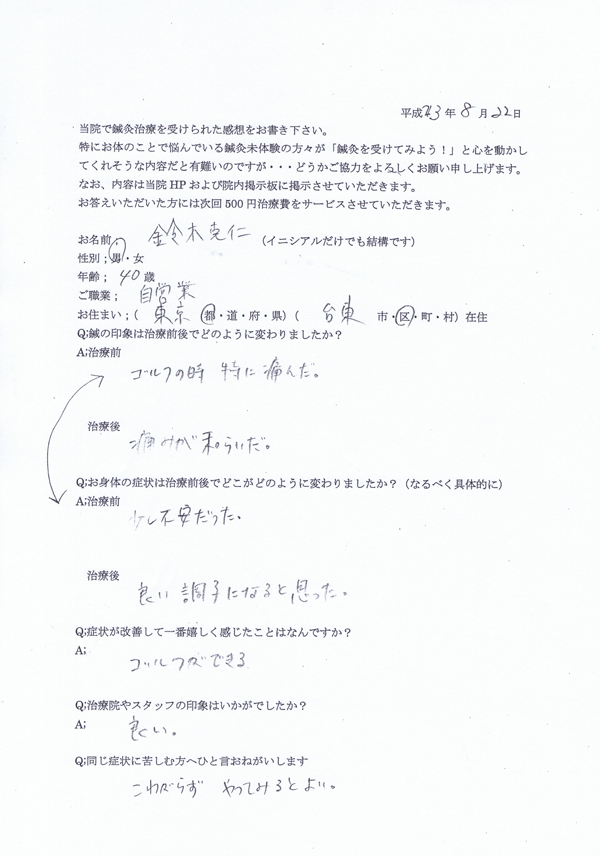 平成23年8月22日
当院で鍼灸治療を受けられた感想をお書き下さい。
特にお体のことで悩んでいる鍼灸未体験の方々が「鍼灸を受けてみよう！」と心を動かし
てくれそうな内容だと有難いのですが・・・どうかご協力をよろしくお願い申し上げます。
なお、内容は当院HPおよび院内掲示板に掲示させていただきます。
お答えいただいた方には次回500円治療費をサービスさせていただきます。
お名前；鈴木克仁（イニシアルだけでも結構です）
性別；男・女
年齢；40歳
ご職業；自営業
お住まい；（東京 都・道・府・県）（台東 市・区・町・村）在住
Q;鍼の印象は治療前後でどのように変わりましたか？
A;治療前
ゴルフの時 特に痛んだ。
治療後
痛みが和らいだ。
Q;お身体の症状は治療前後でどこがどのように変わりましたか？（なるべく具体的に）
A;治療前
少し不安だった。
治療後
良い調子になると思った。
Q;症状が改善して一番嬉しく感じたことはなんですか？
A;
ゴルフができる
Q;治療院やスタッフの印象はいかがでしたか？
A;
良い。
Q;同じ症状に苦しむ方へひと言おねがいします
こわがらず やってみるとよい。